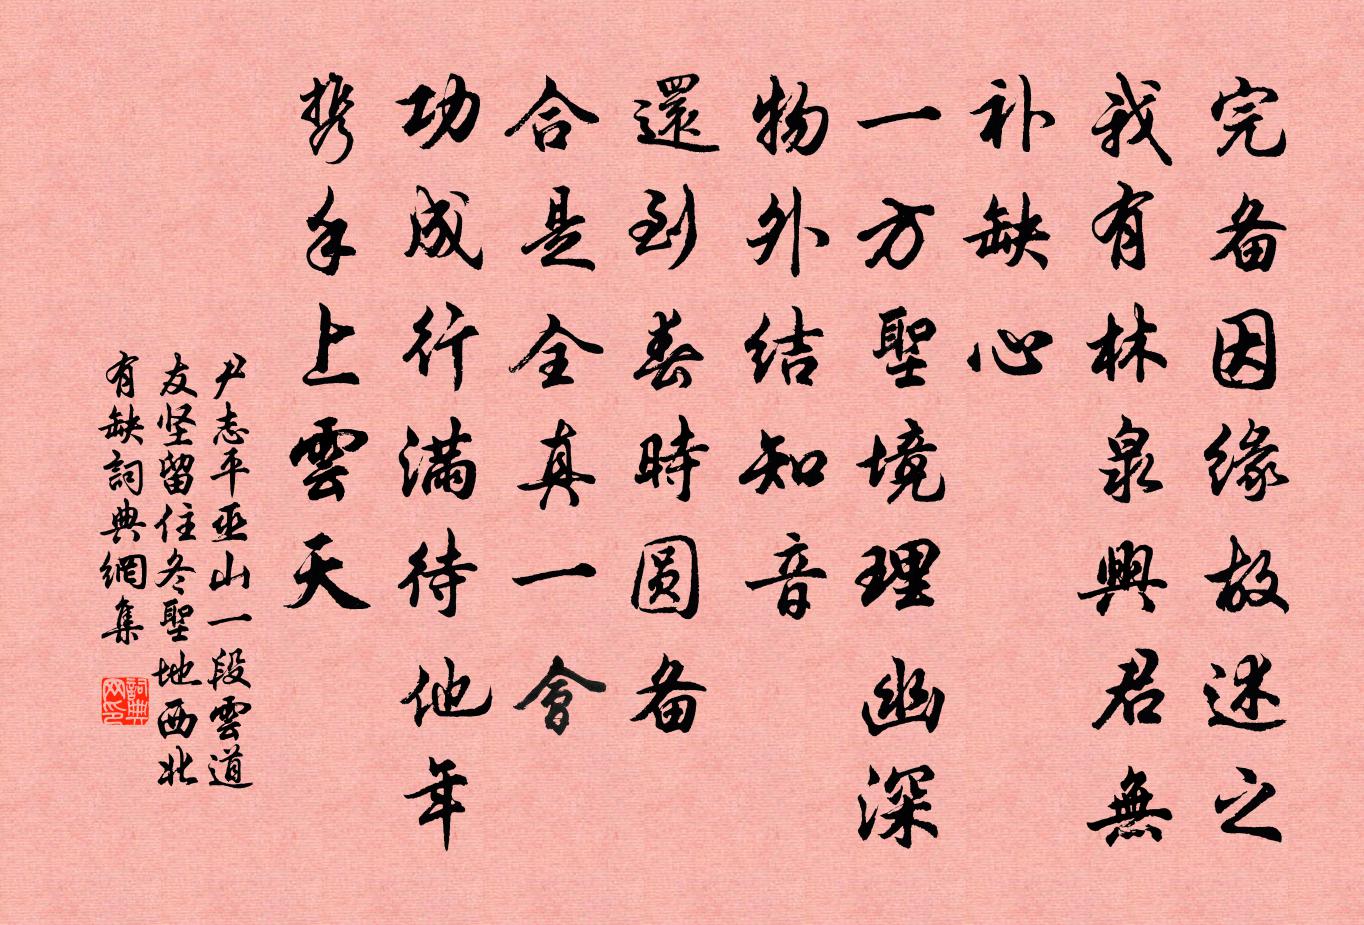 完备因缘故述之
我有林泉興君無
补缺心
一方聖境理幽深
物外结知音
還到春時圆备
合是全真一會
功成行满待他年
携手上雲天
尹志平巫山一段雲道
友坚留住冬聖地西北
有缺詞典網集
詞典网印